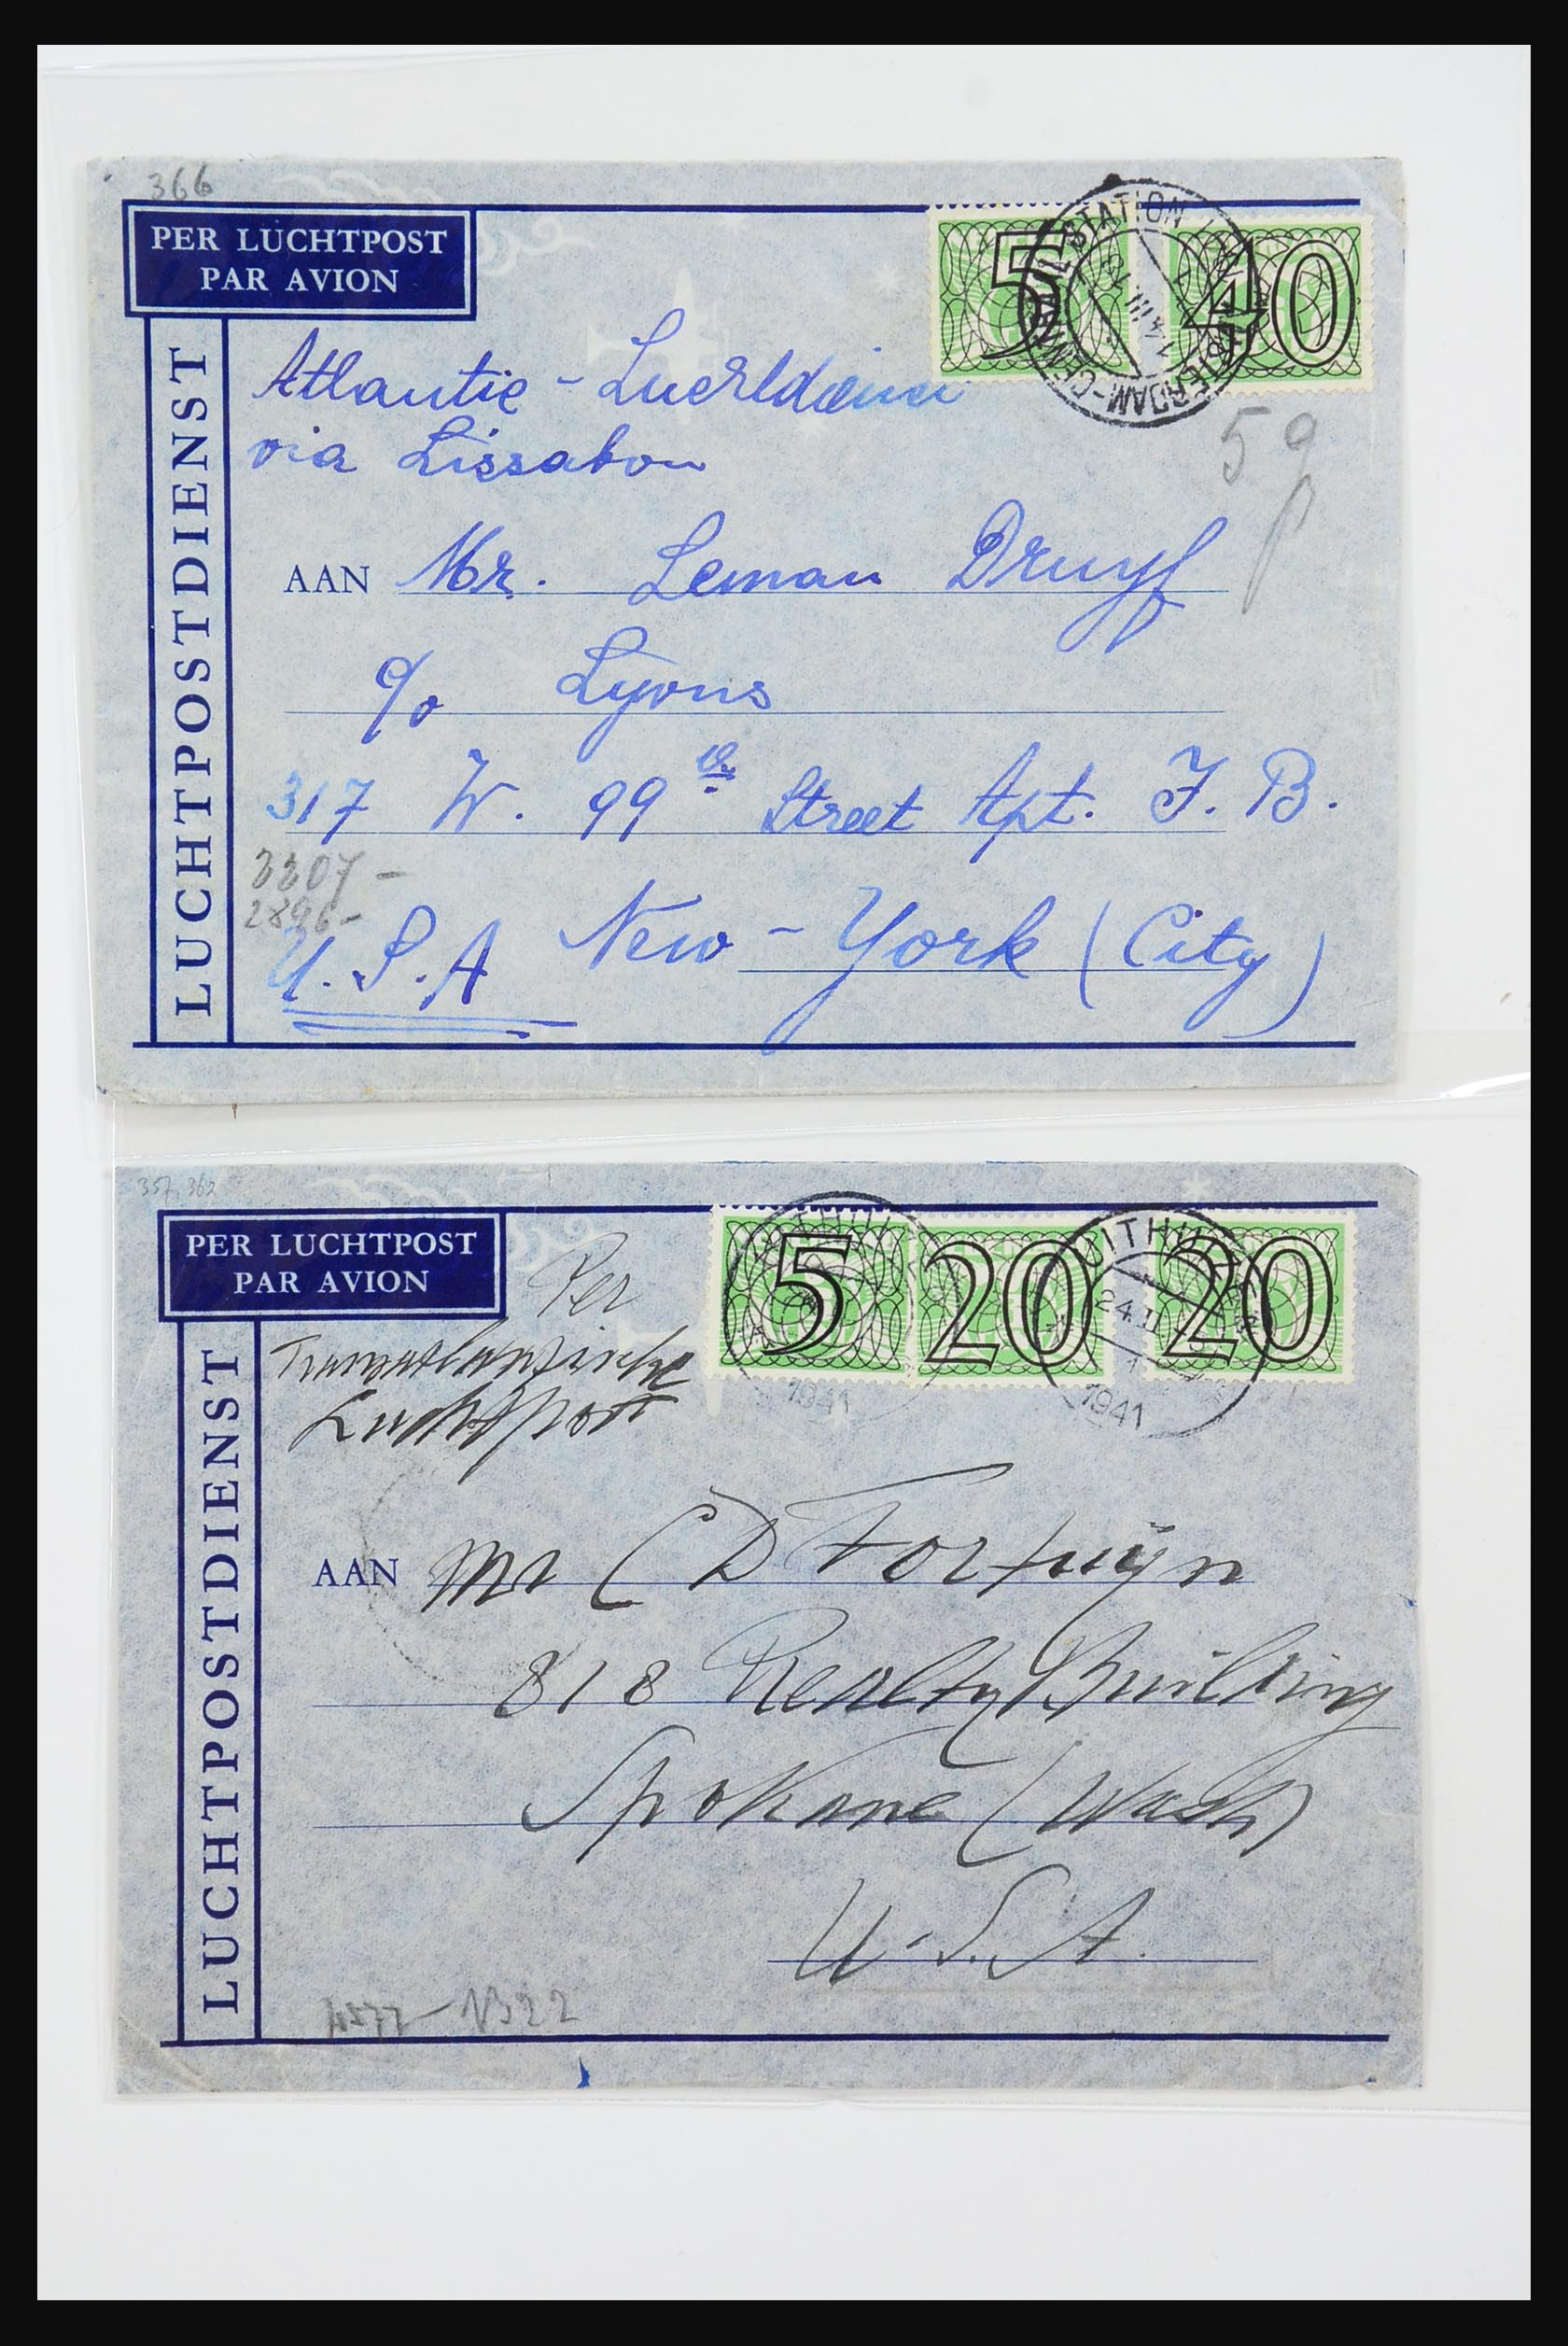 366
PER LUCHTPOST
PAR AVION
LUCHTPOSTDIENST
5 40
STATION
Atlantic - Luchtdienst
via Lissabon
59
AAN Mr. Leman Druyf
c/o Lyons
317 W. 99th Street Apt. F. B.
3307 -
2896 -
U.S.A New-York (City)
357, 362
PER LUCHTPOST
PAR AVION
LUCHTPOSTDIENST
5 20 20
24.II
1941
1941
Per
Transatlantische
Luchtpost
AAN Mr C D Fortuÿn
818 Realty Building
Spokane (Wash)
U.S.A.